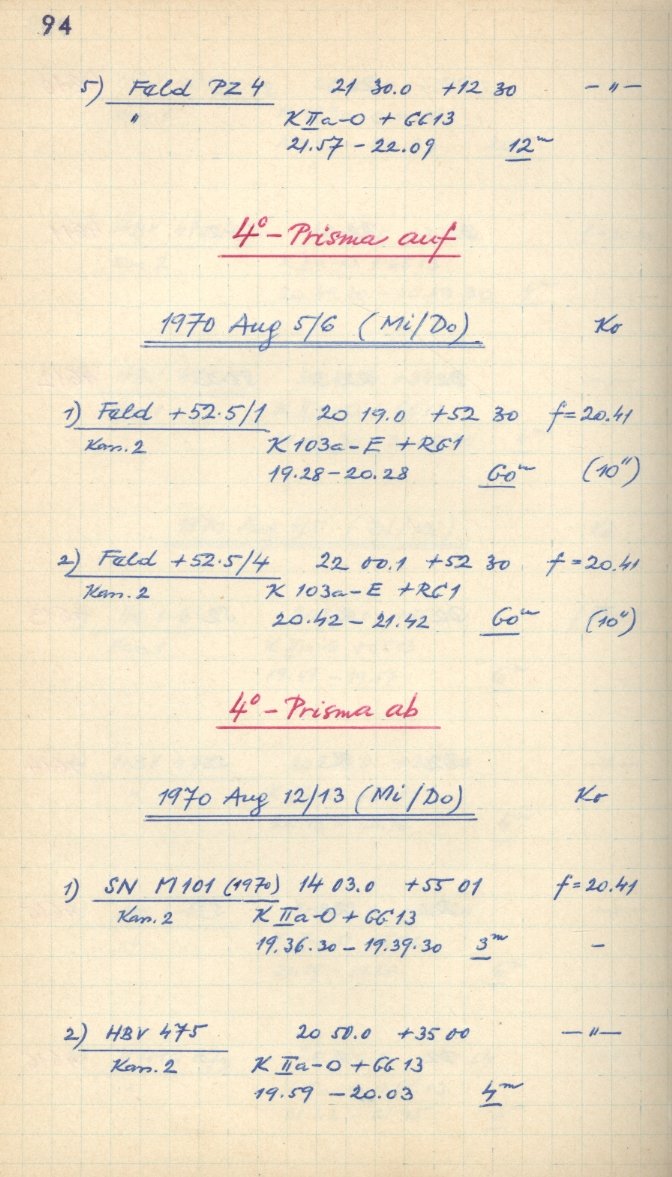 94
5) Feld PZ 4 21 30.0 +12 30 —"—
" K IIa-O + GG13
21.57 – 22.09 12ᵐ
4°-Prisma auf
1970 Aug 5/6 (Mi/Do) Ko
1) Feld +52.5/1 20 19.0 +52 30 f=20.41
Kass. 2 K 103a-E +RG1
19.28–20.28 60ᵐ (10")
2) Feld +52.5/4 22 00.1 +52 30 f=20.41
Kass. 2 K 103a-E +RG1
20.42 – 21.42 60ᵐ (10")
4°-Prisma ab
1970 Aug 12/13 (Mi/Do) Ko
1) SN M101 (1970) 14 03.0 +55 01 f=20.41
Kass. 2 K IIa-O + GG13
19.36.30 – 19.39.30 3ᵐ –
2) HBV 475 20 50.0 +35 00 —"—
Kass. 2 K IIa-O + GG13
19.59 – 20.03 4ᵐ